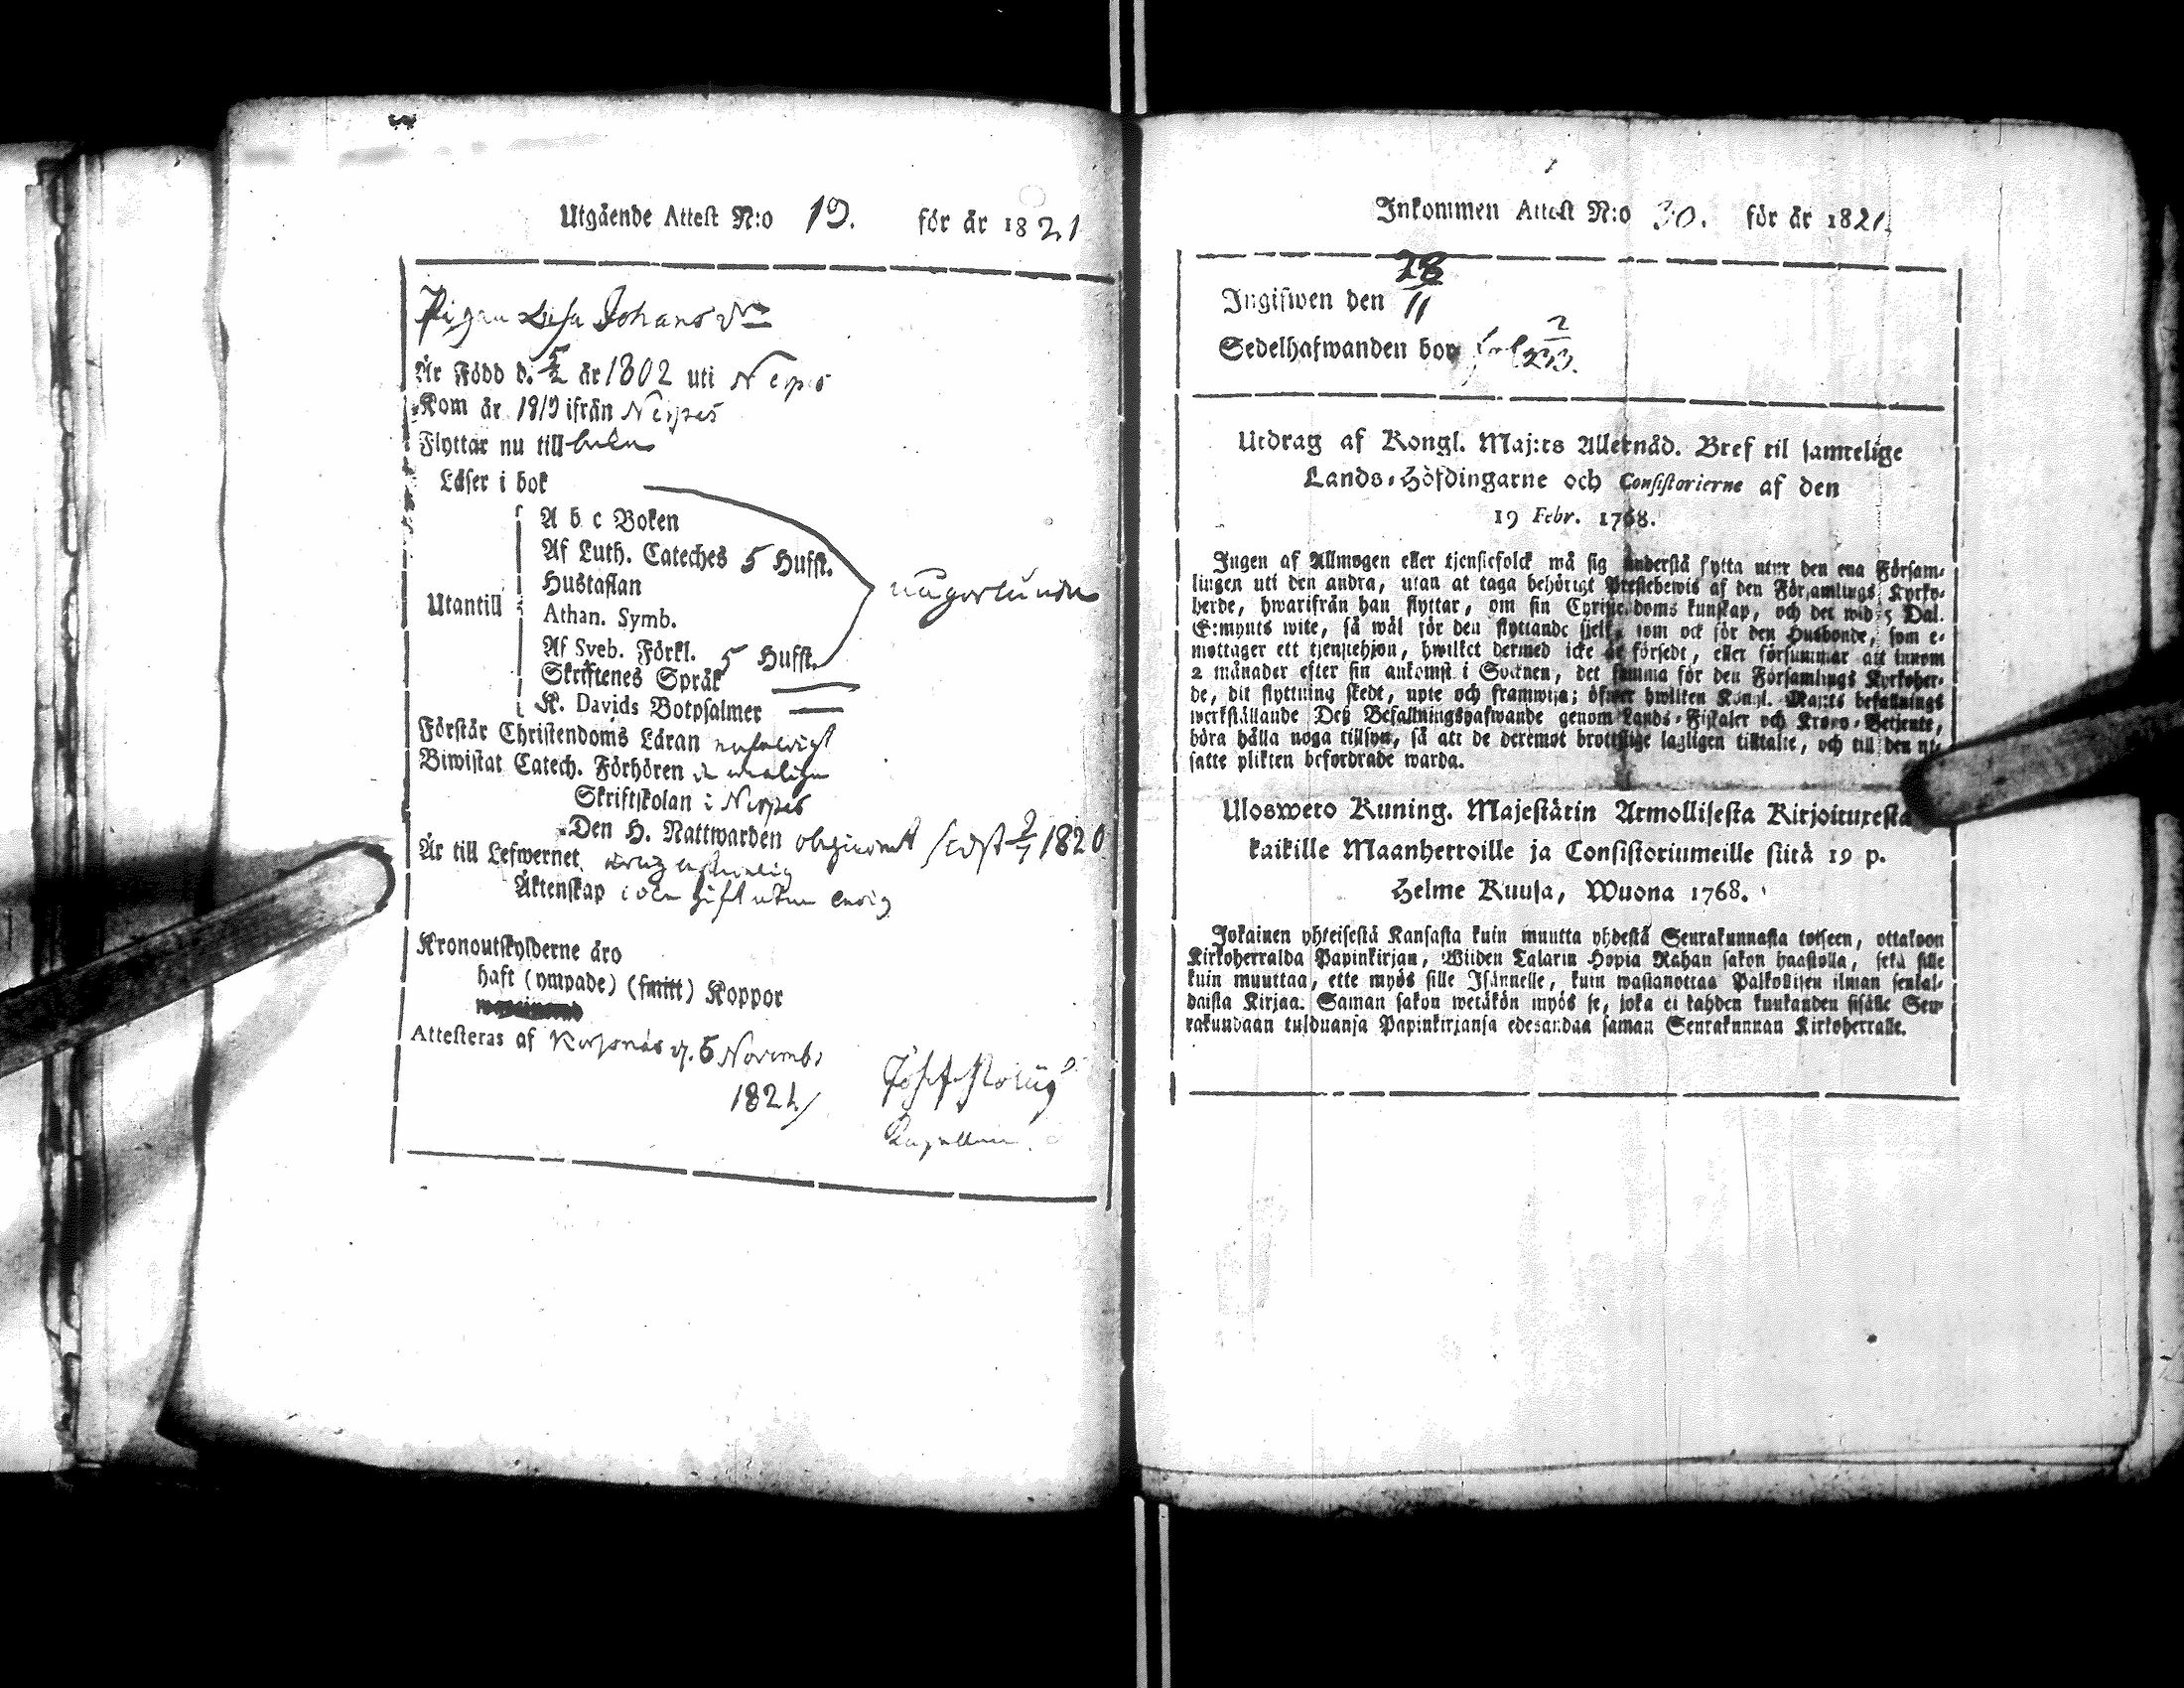 Utgående Attest N:o 19. för år 1821
Pigan Lisa Johansdr
Är Född d. 5/2 år 1802 uti Nerpes
Kom år 1819 ifrån Nerpes
Flyttar nu till
Läser i bok
A b c Boken
Af Luth. Cateches 5 Hufst.
Hustaflan
någorlunda
Utantill
Athan. Symb.
Af Sveb. Förkl. 5 Hufst.
Skriftenes Språk
K. Davids Botpsalmer
Förstår Christendoms Läran enfaldigt
Biwistat Catech. Förhören
Skriftskolan i Nerpes
Den H. Nattwarden begådt sidst 9/7 1820
Är till Lefwernet
Äktenskap
Kronoutskylderne äro
haft (ympade) (smitt) Koppor
Attesteras af Korsnäs d. 5 Novemb.
1821
Kapellan
Inkommen Attest N:o 30. för år 1821.
Ingifwen den 28/11
Sedelhafwanden bor
Utdrag af Kongl. Maj:ts Allernåd. Bref til samtelige
Lands-Höfdingarne och Consistorierne af den
19 Febr. 1768.
Ingen af Allmogen eller tjenstefolck må sig understå flytta utur den ena Försam-
lingen uti den andra, utan at taga behörigt Prestebewis af den Församlings Kyrko-
herde, hwarifrån han flyttar, om sin Christendoms kunskap, och det wid 5 Dal.
S:mynts wite, så wäl för den flyttande sjelf, som ock för den Husbonde, som e-
mottager ett tjenstehjon, hwilket dermed icke är försedt, eller försummar att innom
2 månader efter sin ankomst i Socknen, det samma för den Församlings Kyrkoher-
de, dit flyttning skedt, upte och framwisa; öfwer hwilken Kongl. Maj:ts befallnings
werkställande Deß Befallningshafwande genom Lands-Fiskaler och Krono-Betjente,
böra hålla noga tillsyn, så att de deremot brottslige lagligen tilltalte, och till den ut-
satte plikten befordrade warda.
Ulosweto Kuning. Majestätin Armollisesta Kirjoituxesta
kaikille Maanherroille ja Consistoriumeille siitä 19 p.
Helme Kuusa, Wuona 1768.
Jokainen yhteisestä Kansasta kuin muutta yhdestä Seurakunnasta toiseen, ottakoon
Kirkoherralda Papinkirjan, Wiiden Talarin Hopia Rahan sakon haastolla, sekä sille
kuin muuttaa, ette myös sille Isännelle, kuin wastanottaa Palkollisen ilman senkal-
daista Kirjaa. Saman sakon wetäkön myös se, joka ei kahden kuukauden sisälle Seu-
rakundaan tulduansa Papinkirjansa edesandaa saman Seurakunnan Kirkoherralle.